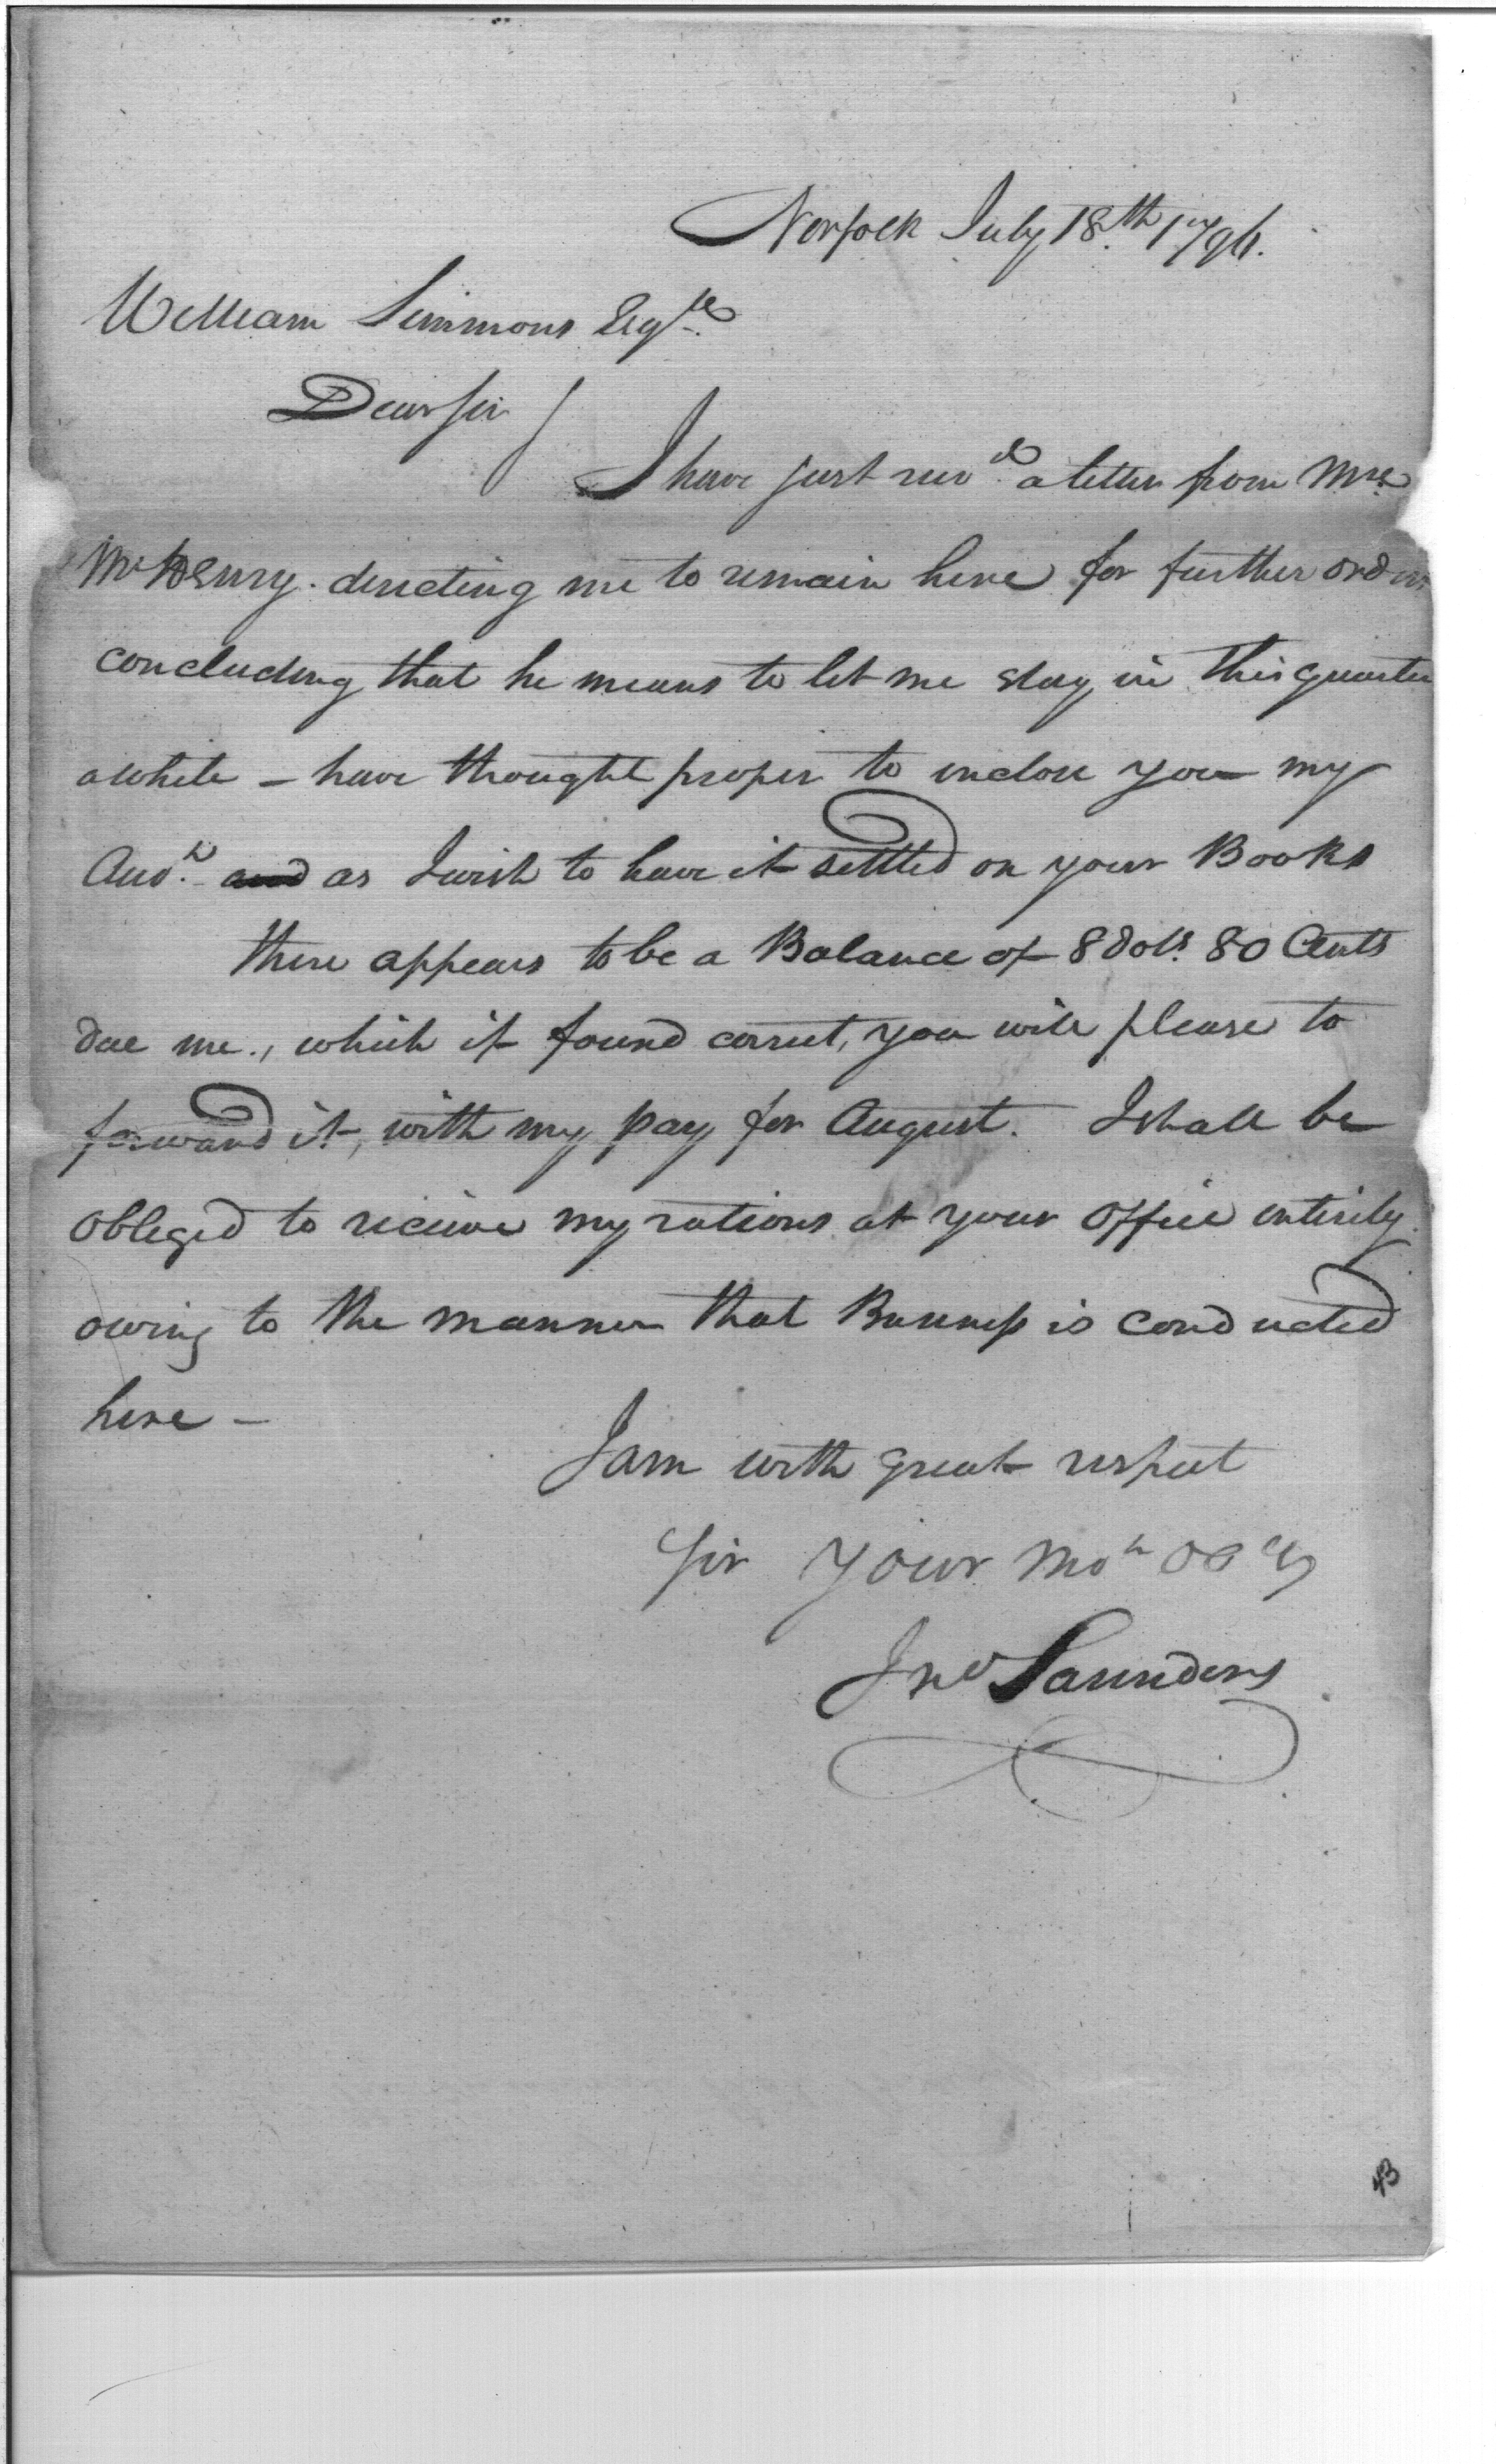 Norfolk July 18th 1796.
William Simmons Esqre
Dear Sir /
I have just recd a letter from Mr
McHenry. directing me to remain here for further orders
concluding that he means to let me stay in this quarter
awhile – have thought proper to inclose you my
Acct. and as I wish to have it settled on your Books
there appears to be a Balance of 8 dols. 80 Cents
due me., which if found correct, you will please to
forward it, with my pay for August. I shall be
obleged to recieve my rations at your Office entirely.
owing to the manner that Business is conducted
here –
I am with great respect
Sir Your Mot Obt
Jno Saunders
43